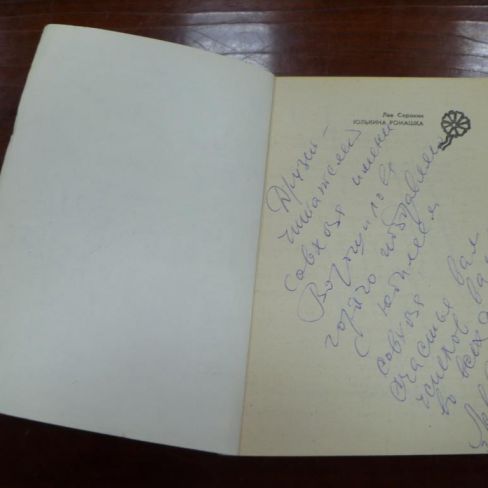 Лев Сорокин
ЮЛЬКИНА РОМАШКА
Друзья -
читателей
совхоза имени
Ворошилова
горячо поздравляю
с юбилеем
совхоза
счастья вам
успехов вам
во всех